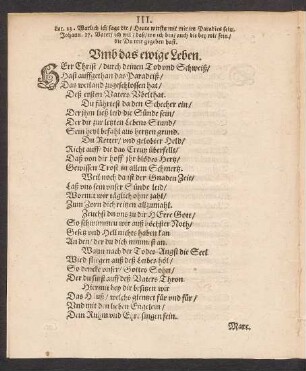 III.
Luc. 23. Warlich ich sage dir / Heute wirstu mit mir im Paradies sein.
Johann. 17. Vater, ich wil / daß, wo ich bin, auch die bey mir sein /
die Du mir gegeben hast.
Vmb das ewige Leben.
HErr Christ / durch deinen Tod und Schweiß /
Hast auffgethan das Paradeiß /
Das weiland zugeschlossen hat /
Deß ersten Vaters Vbelthat.
Du führest da den Schecher ein /
Der jhm ließ leid die Sünde sein /
Der dir zur letzten Lebens Stund /
Sein seel befahl aus hertzen grund.
Du Retter / und gelobter Held /
Richt auff / die das Creuz überfellt /
Daß von dir hoff jhr blödes Hertz /
Gewissen Trost in allem Schmertz.
Weil noch da ist der Gnaden Zeit /
Laß uns sein unser Sünde leid /
Worm wir täglich ohne zahl /
Zum Zorn dich reitzen allzumahl.
Zeuchst du uns zu dir HErre Gott /
So köñ wir auß höchster Noth /
Gesetz und Hell nichts haben kan
An den / der du dich nimmst an.
Wann nach der Todes-Angst die Seel
Wird steigen auß deß Leibes höl /
So dencke unser / Gottes Sohn /
Der du sitzst auff deß Vaters Thron.
Hiermit bey dir besitzen wir
Das Hauß / welchs glentzet für und für /
Vnd mit den lieben Engelein /
Dein Ruhm und Ehre singen fein.
Marc.